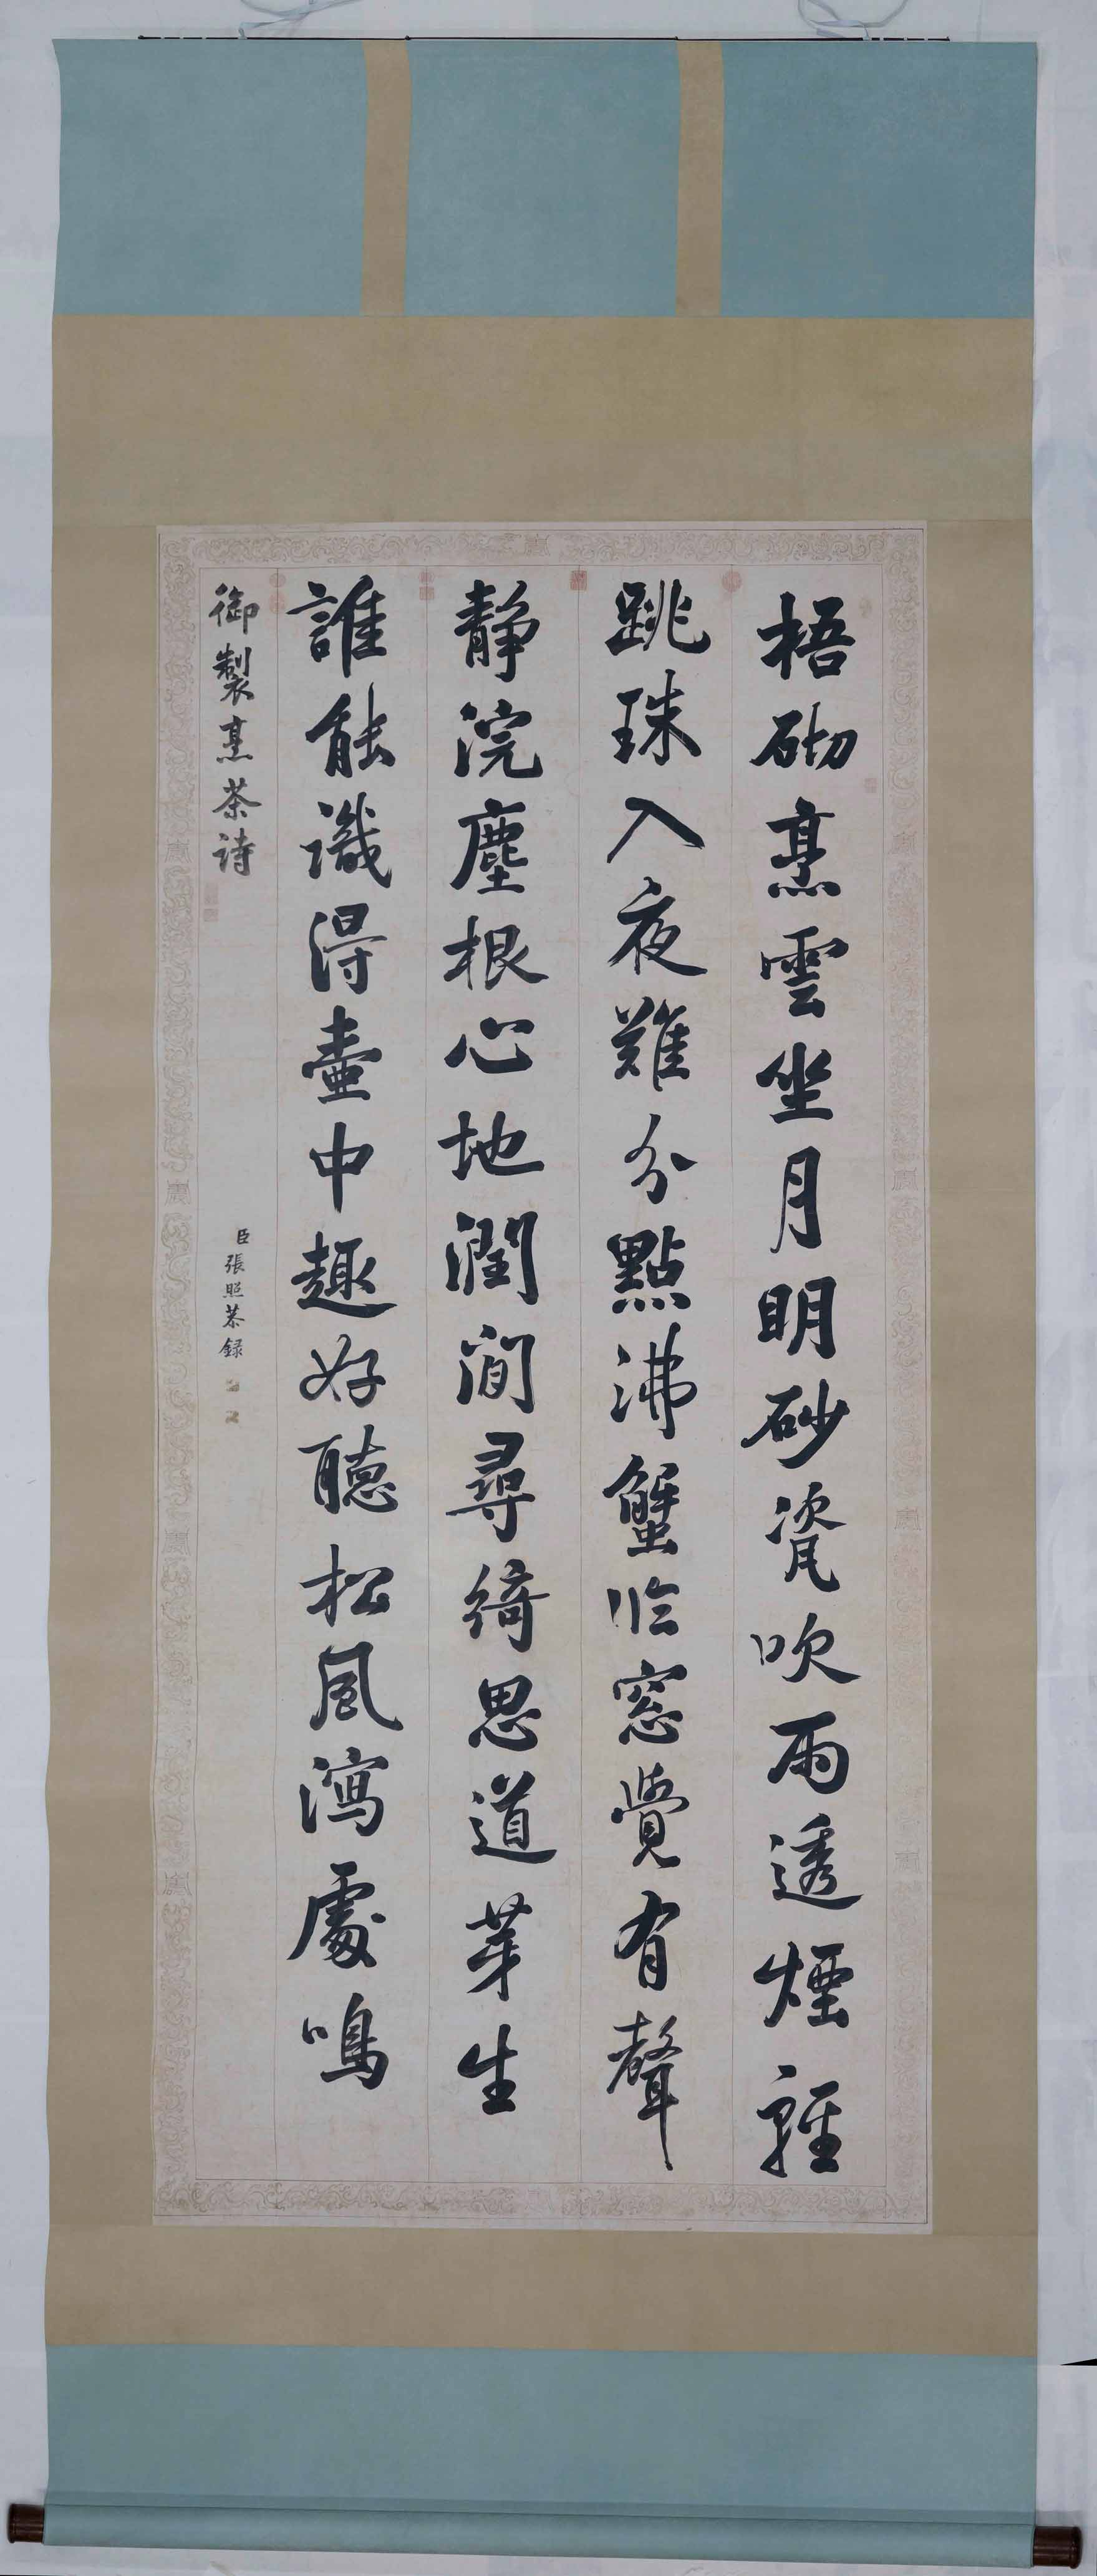 梧砌烹雲坐月明砂瓷吹雨透煙輕
跳珠入夜難分點沸蟹臨窓覺有聲
静浣塵根心地潤閒尋綺思道芽生
誰能識得壺中趣好聽松風瀉處鳴
御製烹茶詩
臣張照恭録